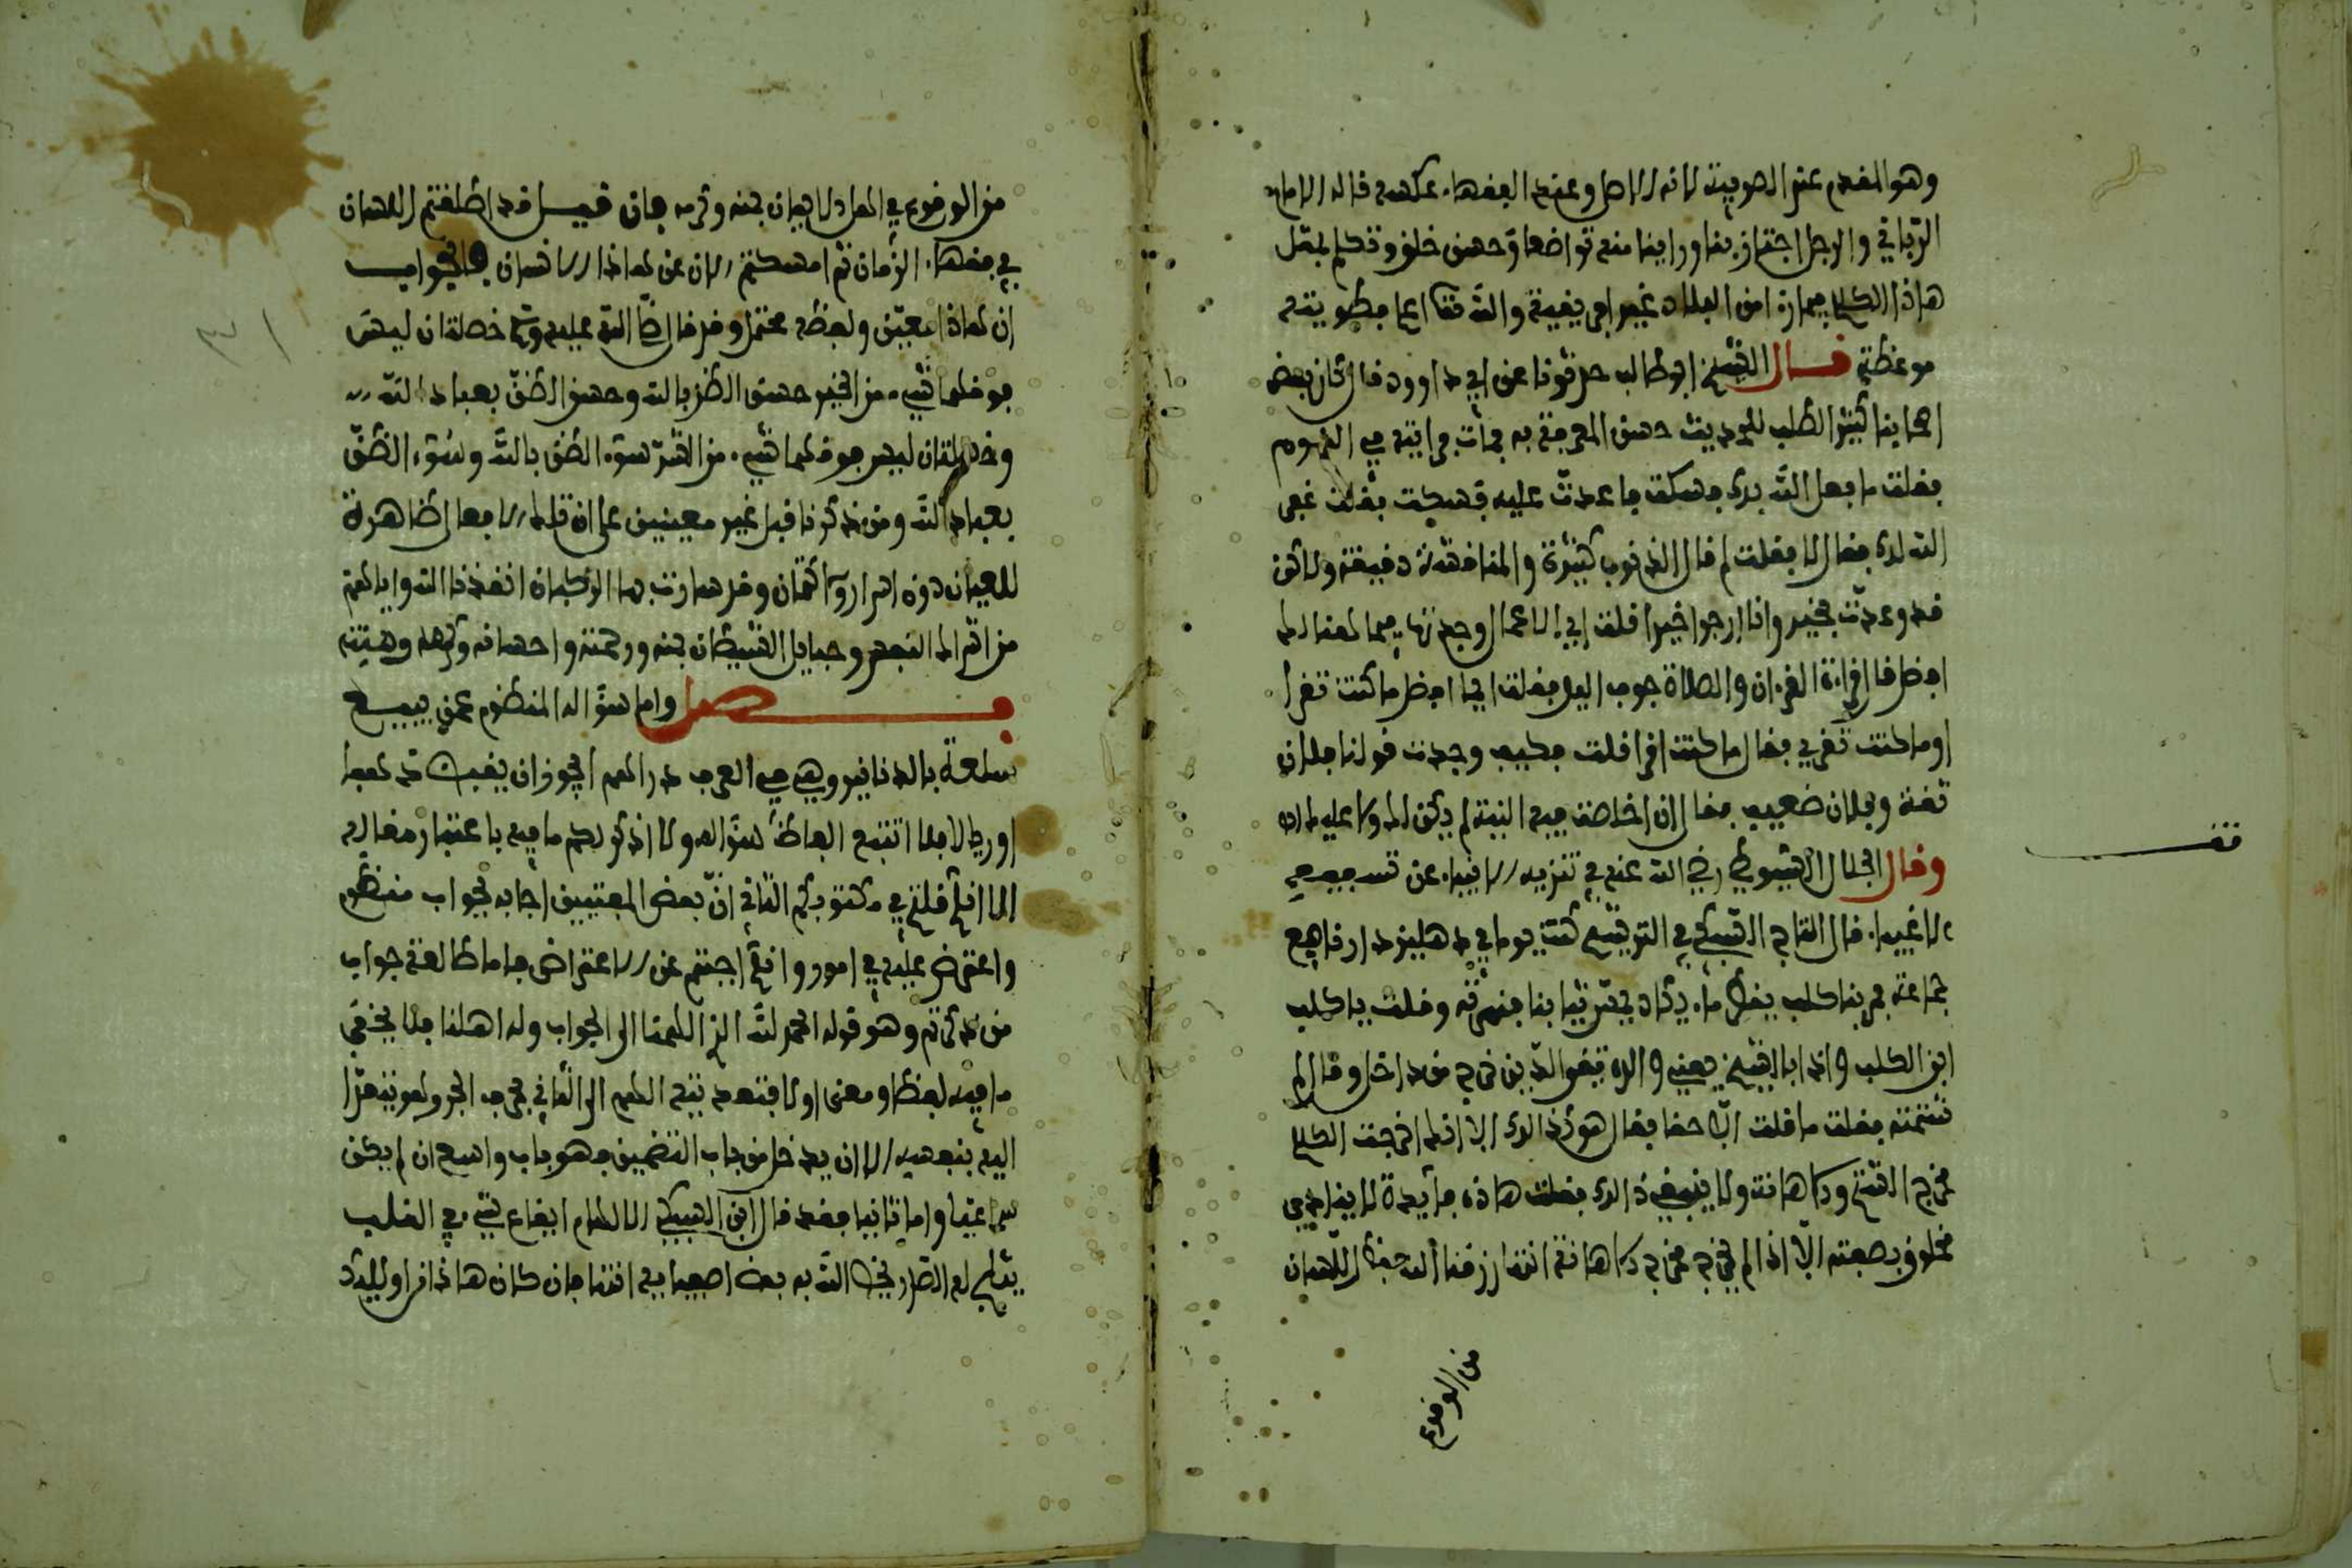 وهو المقدم عند الصوفية لانه الاصل وعند الفقهاء عكسه قاله الامام
الرباني والرجل اجتاز بنا وراينا منه تواضعا وحسن خلق وتكلم بمثل
هاذا الكلام فيما زاد من العلماء غير اهل يقينه والله تعالى اعلم بطويته
موعظة قال الشيخ ابو طالب حدثونا عن ابي داوود قال كان بعض
اصحابنا كثير الطلب للحديث حسن المعرفة به فمات فرايته في النوم
فقلت ما فعل الله بك فسكت فاعدت عليه فسكت فقلت غفر
الله لك فقال لا فقلت لم قال الذنوب كثيرة والمناقشة دقيقة ولاكن
قد وعدت بخير وانا ارجوا خيرا قلت اي الاعمال وجدتها فيما هنالك
افضل قال قراءة القرءان والصلاة جوف اليل فقلت ايما افضل ما كنت تقرا
اوما كنت تقري فقال ما كنت اقرا قلت فكيف وجدت قولنا فلان
ثقة وفلان ضعيف فقال ان خلصت فيه النية لم يكن لك ولا عليك
وقال الجلال السيوطي رضي الله عنه في تنزيه الانبياء عن تسفيه
الاغبياء قال التاج السبكي في الترشيح كنت يوما في دهليز دارنا في
جماعة فمر بنا كلب يقطر ماء يكاد يمس ثيابنا فنهرته وقلت يا كلب
ابن الكلب واذا بالشيخ يعني والده تقي الدين خرج من داخل وقال لم
شتمته فقلت ما قلت الا حقا فقال هو كذلك الا انك اخرجت الكلام
مخرج الشتم والاهانة ولا ينبغي ذالك فقلت هاذه فائدة لا ينادى
مخلوق بصفته الا اذا لم يخرج مخرج الاهانة انتهى رزقنا الله حفظ اللسان
من الوقوع
تقف
من الوقوع في المعاد لا بمنه وكرمه فان قيل قد اطلقتم اللسان
في فقهاء الزمان ثم امسكتم الان عن هاذا الانسان فالجواب
ان هاذا معين ولفظه محتمل وقد قال صلى الله عليه وسلم خصلتان ليس
فوقهما شيء من الخير حسن الظن بالله وحسن الظن بعباد الله
وخصلتان ليس فوقهما شيء من الشر سوء الظن بالله وسوء الظن
بعباد الله ومن ذكرنا قبل غير معينين على ان تلك الافعال ظاهرة
للعيان دون اسرار وكتمان وقد سارت بها الركبان انقذنا الله واياكم
من اشراك النفس وحبايل الشيطان بمنه ورحمته واحسانه وكرمه
فصل واما سؤاله المنظوم عمن يبيع
سلعة بالدنانير وهي في العرف دراهم ايجوز ان يقبض ذهبا
او ريالا فلا اتتبع الفاظ سؤاله ولا اذكر لكم ما فيه باعتبار مقاله
الا انكم قلتم في مكتوبكم الثاني ان بعض المفتيين اجابه بجواب منظوم
واعترض عليه في امور وانكم اجبتم عن الاعتراض فاما مطالعة جواب
من ذكرتم وهو قوله الحمد لله الذي الهمنا الى الجواب وله اهلنا فلا يخفى
ما فيه لفظا ومعنى اولا فتعديته الهم الى الثاني بحرف الجر وهو يتعدى
اليه بنفسه الا ان يدخل من باب التضمين وهو باب واسع ان لم يكن
سماعيا واما ثانيا فقد قال ابن السبكي الالهام ايقاع شيء في القلب
يثلج له الصدر يخص الله به بعض اصفيائه انتهى فان كان هاذا فراولئك